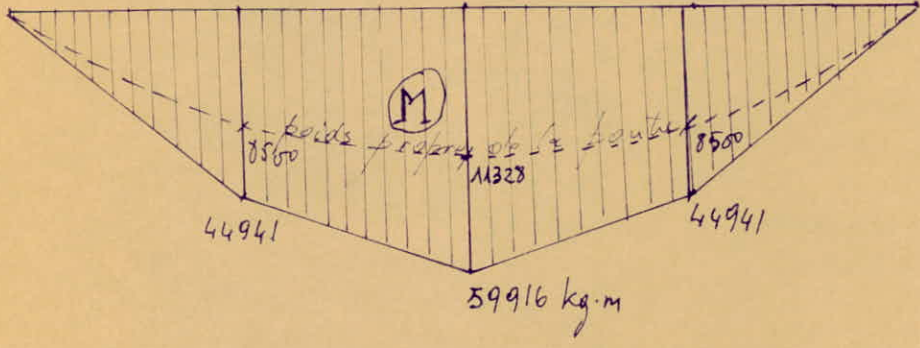 M
poids propre de la poutre
8500
11328
8500
44941
44941
59916 kg.m